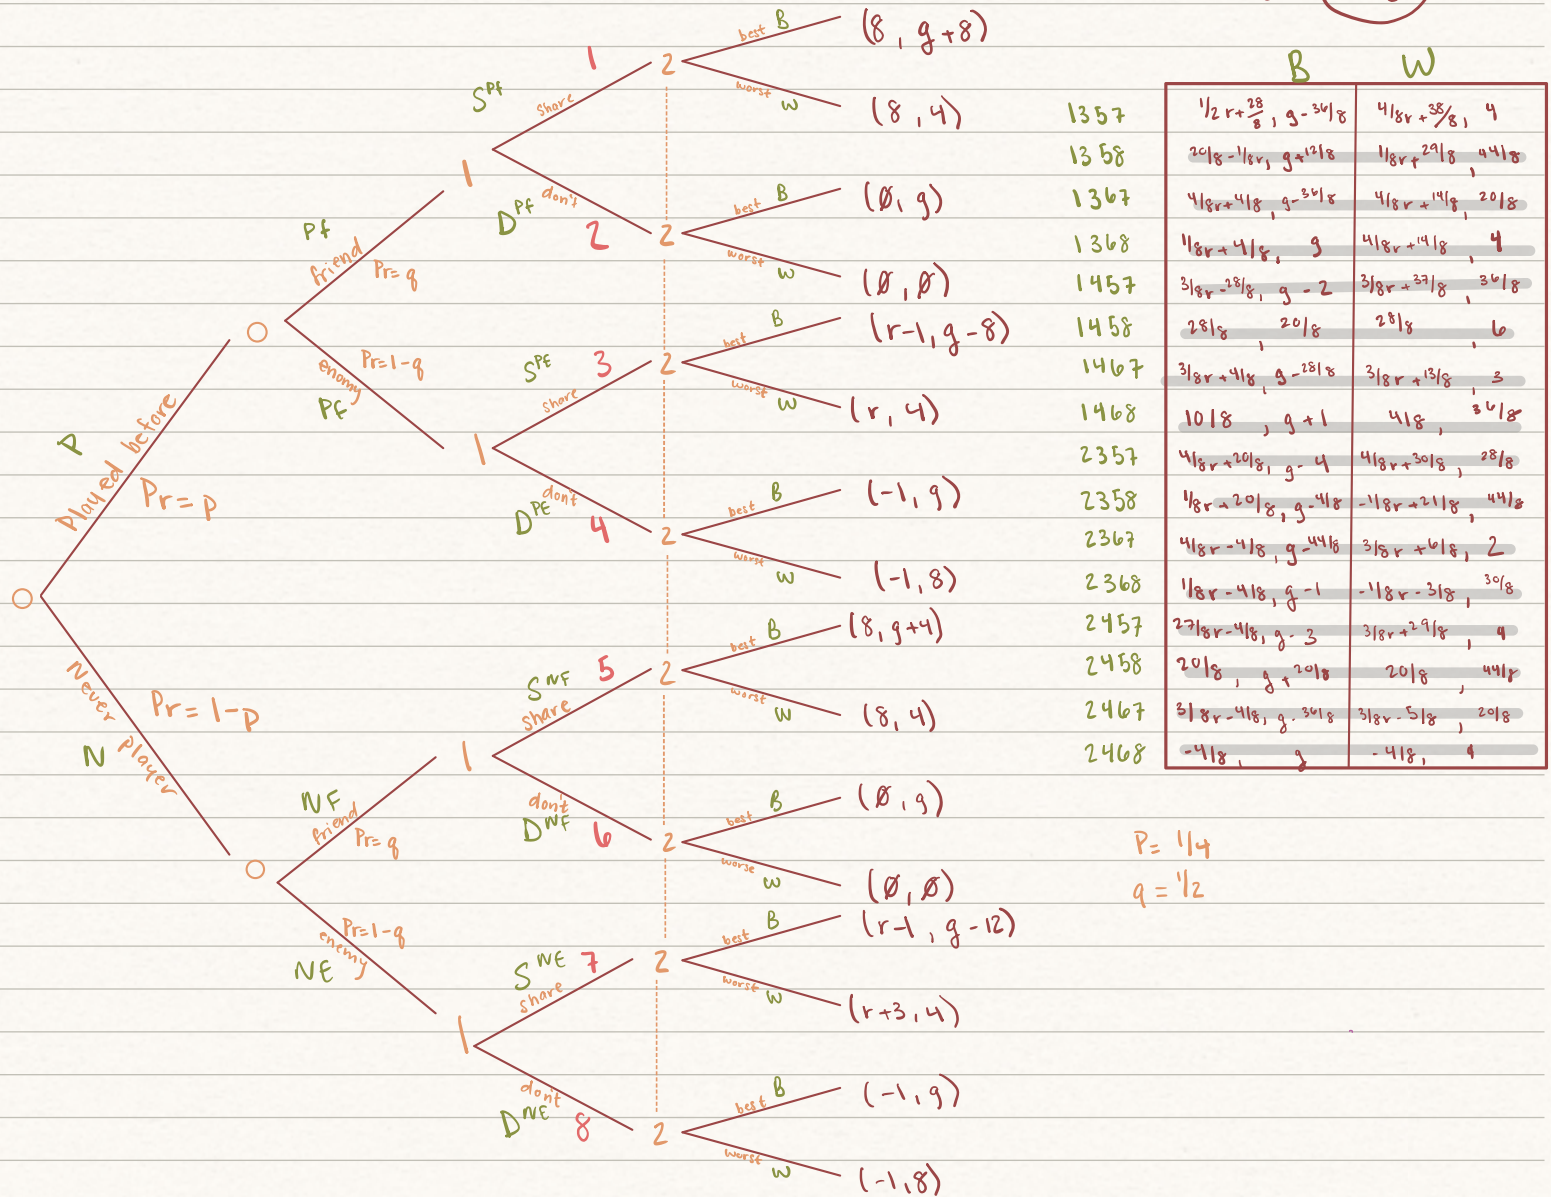 P
Played before
Pr = p
Never player
N
Pr = 1-p
Pf
friend
Pr = q
enemy
Pr = 1-q
Pf
NF
friend
Pr = q
enemy
Pr = 1-q
NE
1
S^Pf
share
1
D^Pf
don't
2
1
S^PE
share
3
D^PE
don't
4
1
S^NF
share
5
D^NF
don't
6
1
S^NE
share
7
D^NE
don't
8
2 best B (8, g+8)
worst W (8, 4)
2 best B (∅, g)
worst W (∅, ∅)
2 best B (r-1, g-8)
worst W (r, 4)
2 best B (-1, g)
worst W (-1, 8)
2 best B (8, g+4)
worst W (8, 4)
2 best B (∅, g)
worse W (∅, ∅)
2 best B (r-1, g-12)
worst W (r+3, 4)
2 best B (-1, g)
worst W (-1, 8)
B W
1357 1/2r+28/8, g-36/8 4/8r+38/8, 4
1358 20/8-1/8r, g+12/8 1/8r+29/8, 44/8
1367 4/8r+4/8, g-36/8 4/8r+14/8, 20/8
1368 1/8r+4/8, g 4/8r+14/8, 4
1457 3/8r-28/8, g-2 3/8r+37/8, 36/8
1458 28/8, 20/8 28/8, 6
1467 3/8r+4/8, g-28/8 3/8r+13/8, 3
1468 10/8, g+1 4/8, 36/8
2357 4/8r+20/8, g-4 4/8r+30/8, 28/8
2358 1/8r+20/8, g-4/8 -1/8r+21/8, 44/8
2367 4/8r-4/8, g-44/8 3/8r+6/8, 2
2368 1/8r-4/8, g-1 -1/8r-3/8, 30/8
2457 27/8r-4/8, g-3 3/8r+29/8, 4
2458 20/8, g+20/8 20/8, 44/8
2467 3/8r-4/8, g-36/8 3/8r-5/8, 20/8
2468 -4/8, g -4/8, 4
P = 1/4
q = 1/2